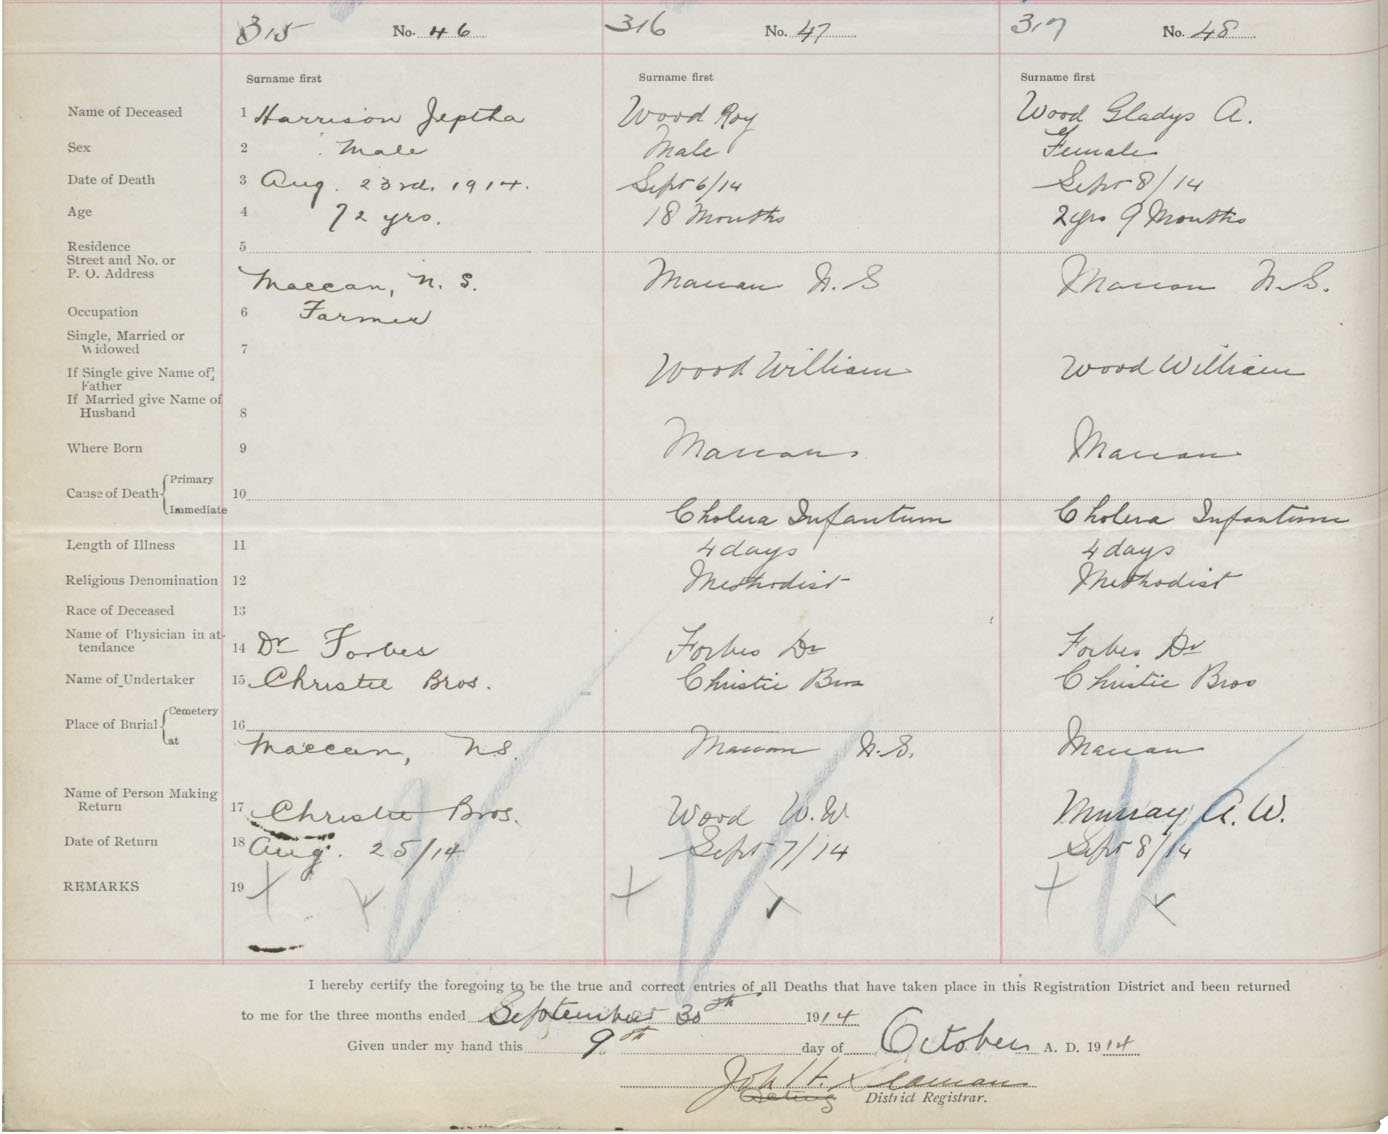 315 No. 46 316 No. 47 317 No. 48
Surname first Surname first Surname first
Name of Deceased 1 Harrison Jeptha Wood Roy Wood Gladys A.
Sex 2 Male Male Female
Date of Death 3 Aug. 23rd. 1914. Sept 6/14 Sept 8/14
Age 4 72 yrs. 18 Months 2 yrs 9 Months
Residence 5
Street and No. or
P. O. Address Maccan, N. S. Maccan N. S Maccan N. S.
Occupation 6 Farmer
Single, Married or
Widowed 7
If Single give Name of Wood William Wood William
Father
If Married give Name of
Husband 8
Where Born 9 Maccan Maccan
Cause of Death Primary 10
Immediate Cholera Infantum Cholera Infantum
Length of Illness 11 4 days 4 days
Religious Denomination 12 Methodist Methodist
Race of Deceased 13
Name of Physician in at-
tendance 14 Dr Forbes Forbes Dr Forbes Dr
Name of Undertaker 15 Christie Bros. Christie Bros Christie Bros
Place of Burial Cemetery 16
at Maccan, N.S. Maccan N. S. Maccan
Name of Person Making
Return 17 Christie Bros. Wood W. W Murray A. W.
Date of Return 18 Aug. 25/14 Sept 7/14 Sept 8/14
REMARKS 19
I hereby certify the foregoing to be the true and correct entries of all Deaths that have taken place in this Registration District and been returned
to me for the three months ended September 30th 1914
Given under my hand this 9th day of October A. D. 1914
H. Seaman
Acting District Registrar.